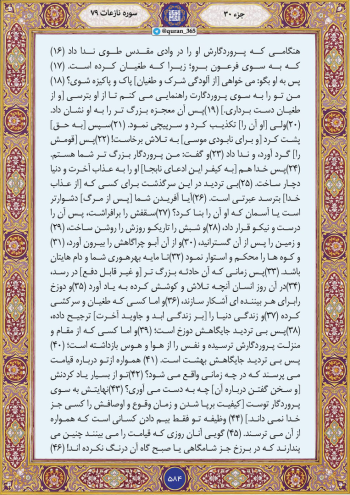 سوره نازعات ۷۹
جزء ۳۰
@quran_365
هنگامی که پروردگارش او را در وادی مقدس طوی ندا داد (۱۶)
که به سوی فرعون برو؛ زیرا که طغیان کرده است. (۱۷)
پس به او بگو: می خواهی [از آلودگی شرک و طغیان] پاک و پاکیزه شوی؟ (۱۸)
من تو را به سوی پروردگارت راهنمایی می کنم تا از او بترسی [و از
طغیان دست برداری.] (۱۹)پس آن معجزه بزرگ تر را به او نشان داد.
(۲۰)ولی [او آن را] تکذیب کرد و سرپیچی نمود. (۲۱)سپس [به حق]
پشت کرد [و برای نابودی موسی] به تلاش برخاست! (۲۲)پس [قومش
را] گرد آورد، و ندا داد (۲۳)و گفت: من پروردگار بزرگ تر شما هستم.
(۲۴)پس خدا هم [به کیفر این ادعای نابجا] او را به عذاب آخرت و دنیا
دچار ساخت. (۲۵)بی تردید در این سرگذشت برای کسی که [از عذاب
خدا] بترسد عبرتی است. (۲۶)آیا آفریدن شما [پس از مرگ] دشوارتر
است یا آسمان که او آن را بنا کرد؟ (۲۷)سقفش را برافراشت، پس آن را
درست و نیکو قرار داد، (۲۸)و شبش را تاریک و روزش را روشن ساخت، (۲۹)
و زمین را پس از آن گسترانید، (۳۰)و از آن آبو چراگاهش را بیرون آورد، (۳۱)
و کوه ها را محکم و استوار نمود (۳۲)تا مایه بهره وری شما و دام هایتان
باشد. (۳۳)پس زمانی که آن حادثه بزرگ تر [و غیر قابل دفع] در رسد،
(۳۴)در آن روز انسان آنچه تلاش و کوشش کرده به یاد آورد (۳۵)و دوزخ
رابرای هر بیننده ای آشکار سازند، (۳۶)و اما کسی که طغیان و سرکشی
کرده (۳۷)و زندگی دنیا را [بر زندگی ابد و جاوید آخرت] ترجیح داده،
(۳۸)پس بی تردید جایگاهش دوزخ است؛ (۳۹)و اما کسی که از مقام و
منزلت پروردگارش ترسیده و نفس را از هوا و هوس بازداشته است؛ (۴۰)
پس بی تردید جایگاهش بهشت است. (۴۱) همواره ازتو درباره قیامت
می پرسند که در چه زمانی واقع می شود؟ (۴۲)تو از بسیار یاد کردنش
[و سخن گفتن درباره آن] چه به دست می آوری؟ (۴۳)نهایتش به سوی
پروردگار توست [کیفیت برپا شدن و زمان وقوع و اوصافش را کسی جز
خدا نمی داند.] (۴۴) وظیفه تو فقط بیم دادن کسانی است که همواره
از آن می ترسند. (۴۵) گویی آنان روزی که قیامت را می بینند چنین می
پندارند که در برزخ جز شامگاهی یا صبح گاه آن درنگ نکرده اند! (۴۶)
۵۸۴